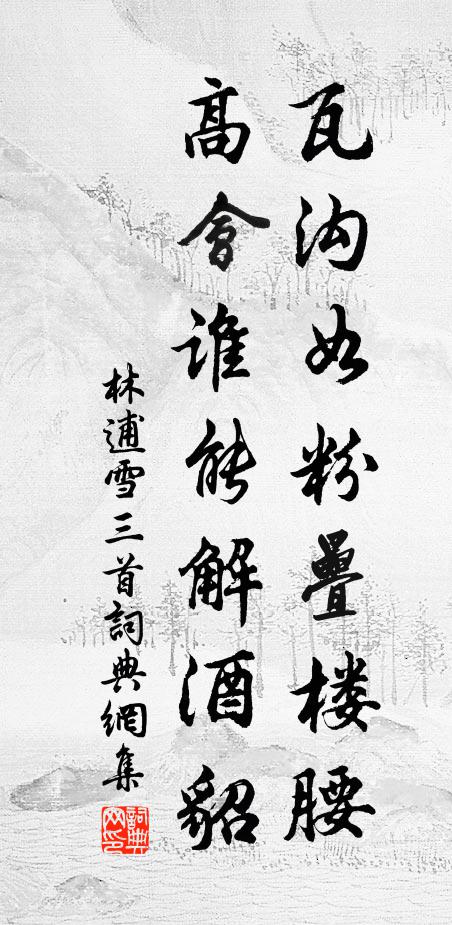 瓦沟如粉疊楼腰
高會谁能解酒貂
林逋雪三首詞典網集
詞典
网印